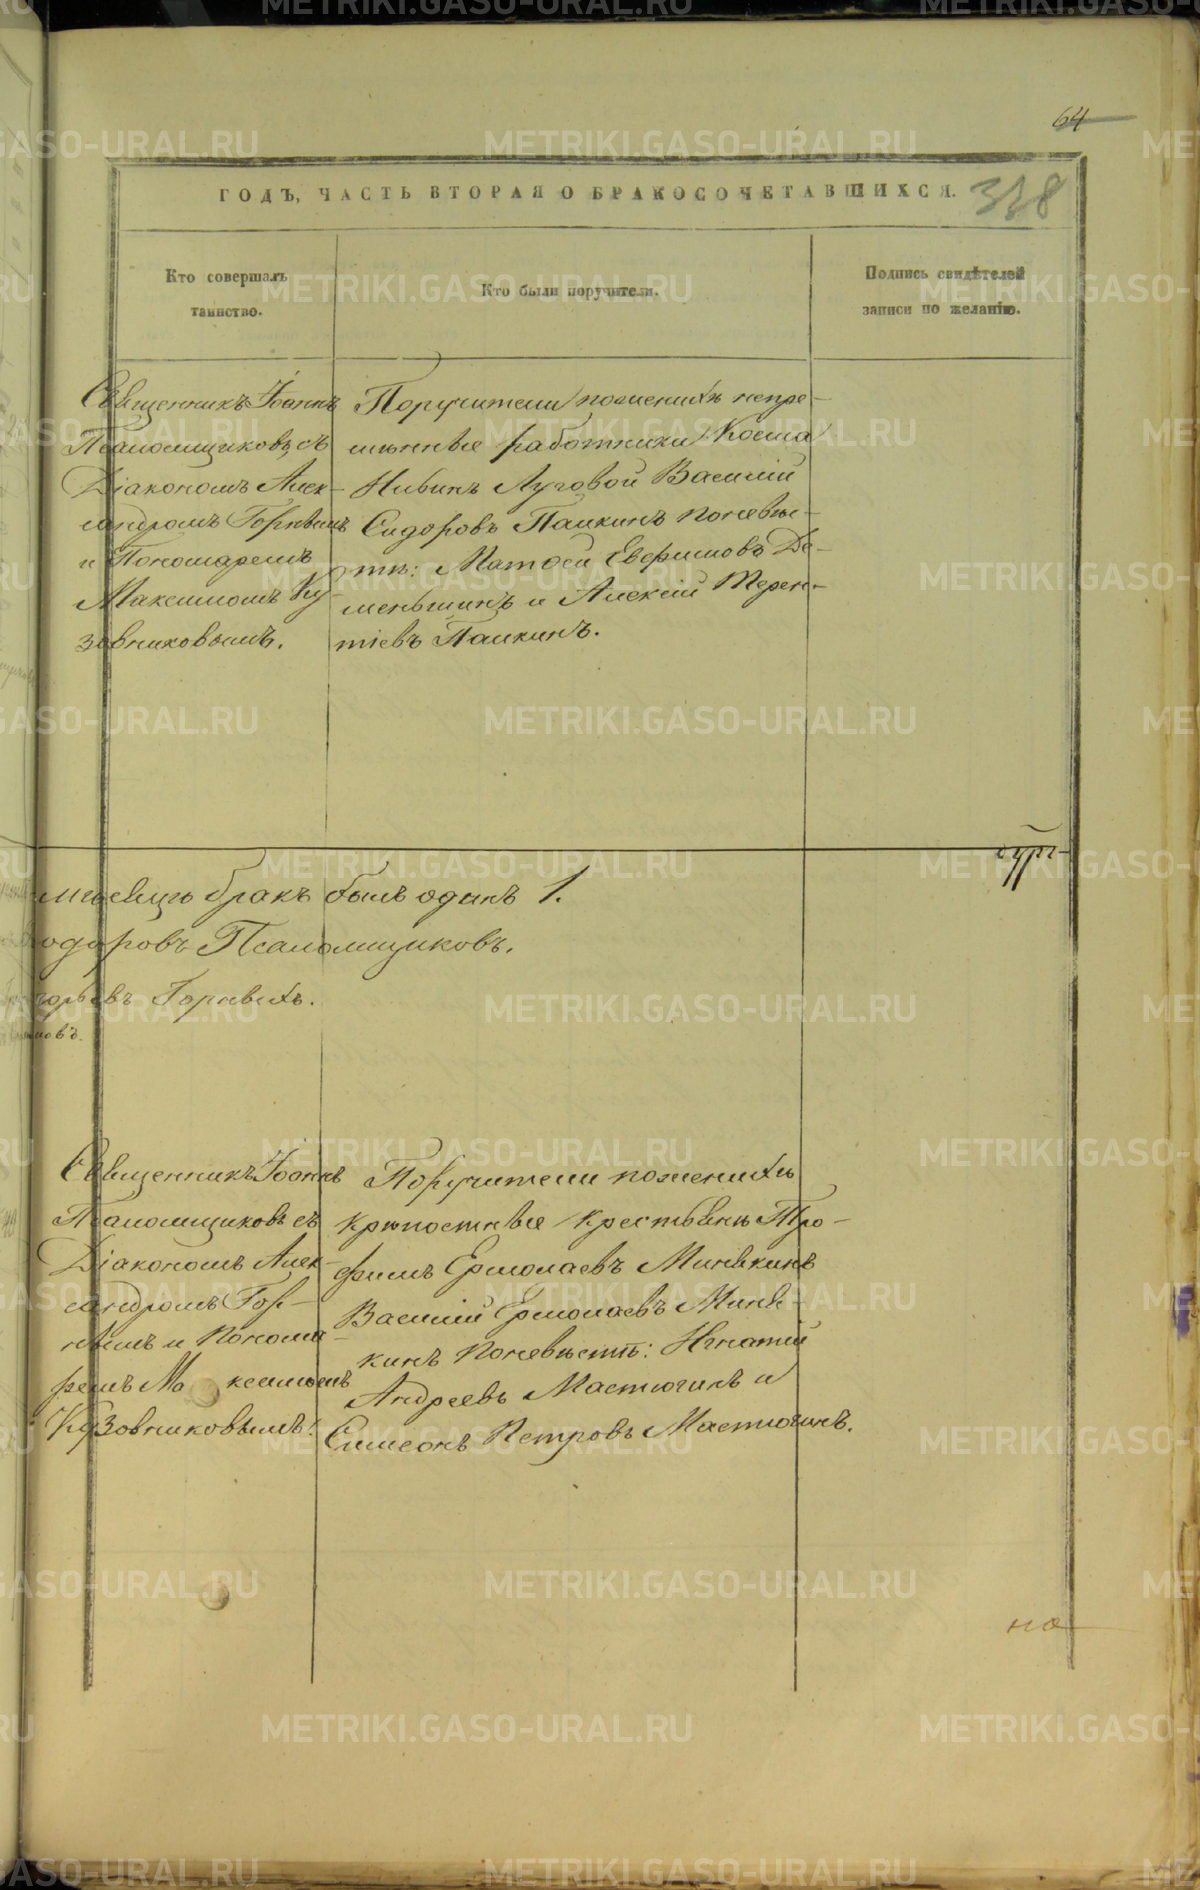 64
ГОДЪ, ЧАСТЬ ВТОРАЯ О БРАКОСОЧЕТАВШИХСЯ.
318
Кто совершалъ
таинство.
Кто были поручители.
Подпись свидѣтелей
записи по желанію.
Священникъ Іоаннъ
Псаломщиковъ съ
Діакономъ Алек-
сандромъ Горныхъ
и Пономаремъ
Максимомъ Ку-
зовниковымъ.
Поручители по женихѣ непре-
мѣнные работники Косма
Ивинъ Луговой Василій
Сидоровъ Палкинъ по невѣс-
тѣ: Матвей Евфимовъ Де-
меньшинъ и Алексій Терен-
тіевъ Палкинъ.
мѣсяцѣ бракъ былъ одинъ 1.
одоровъ Псаломщиковъ.
горьевъ Горныхъ.
Священникъ Іоаннъ
Псаломщиковъ съ
Діакономъ Алек-
сандромъ Гор-
нымъ и Понома-
ремъ Максимомъ
Кузовниковымъ.
Поручители по женихѣ
крѣпостные крестьяне Тро-
фимъ Ермолаевъ Минякинъ
Василій Ермолаевъ Миня-
кинъ по невѣстѣ: Игнатій
Андреевъ Мастюгинъ и
Симеонъ Петровъ Мастюгинъ.
на
METRIKI.GASO-URAL.RU